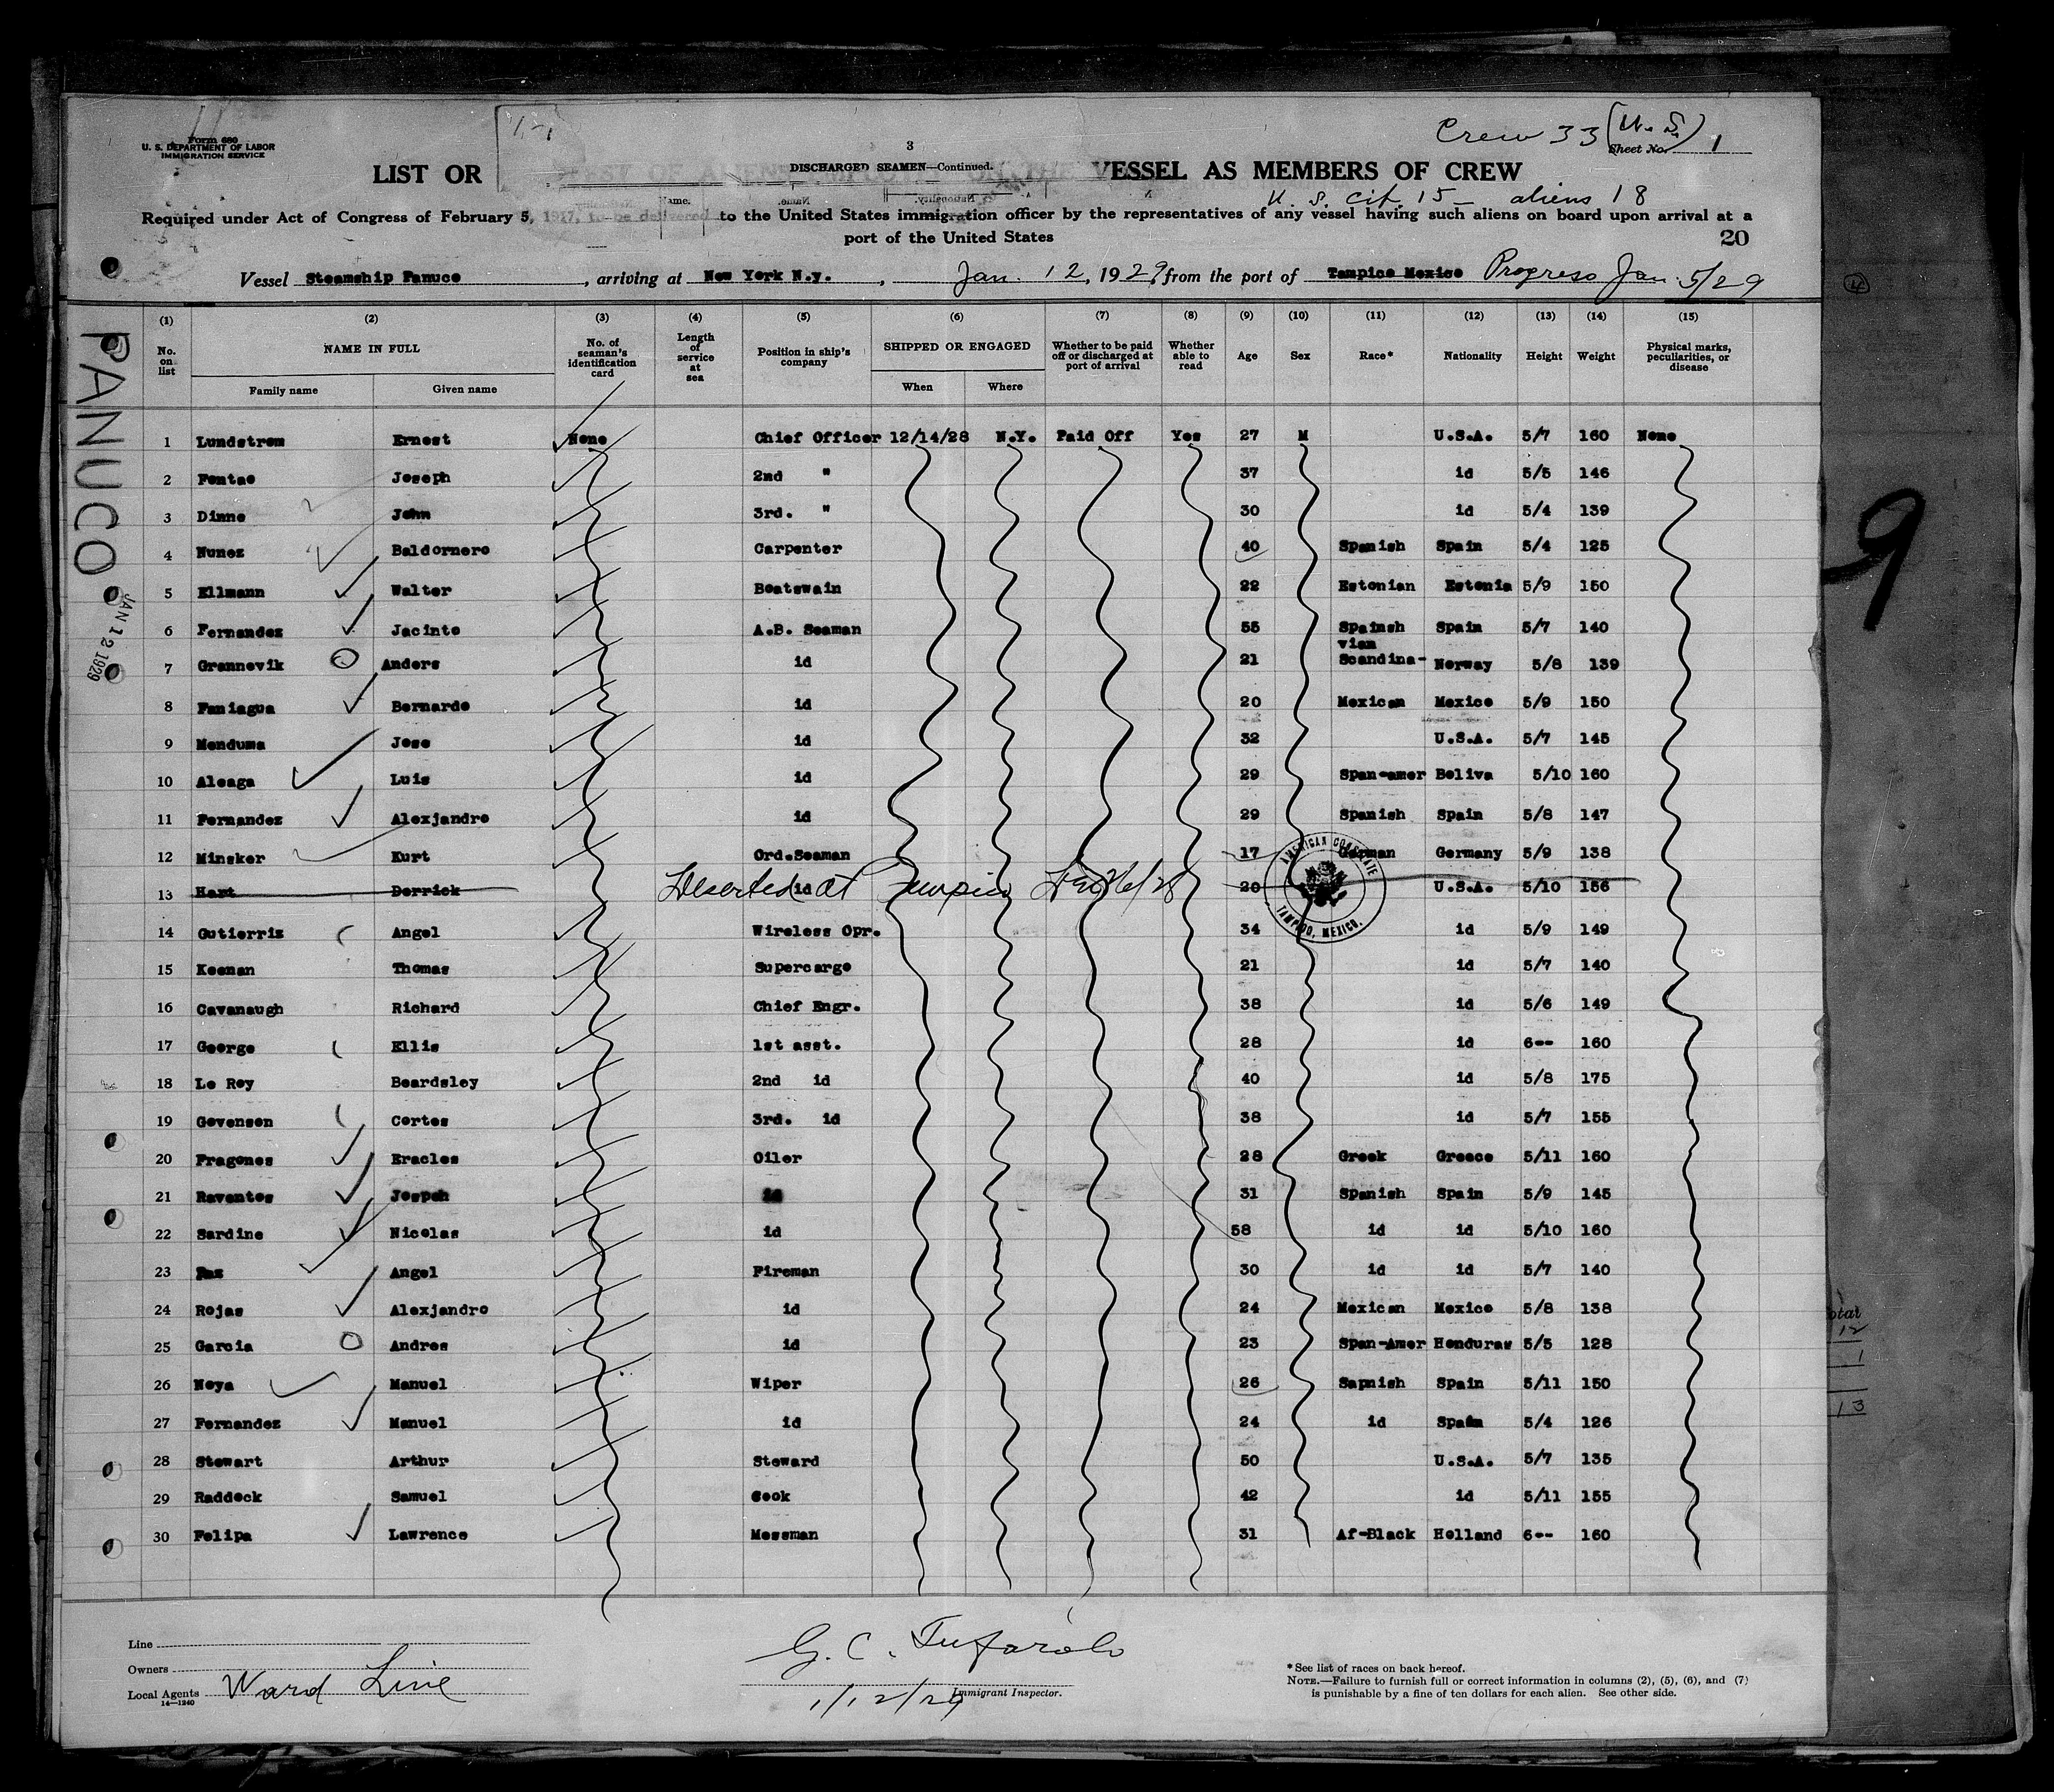 Form 680
U. S. DEPARTMENT OF LABOR
IMMIGRATION SERVICE
3
DISCHARGED SEAMEN—Continued.
Crew 33 (U. S.)
Sheet No. 1
LIST OR VESSEL AS MEMBERS OF CREW
U. S. cit. 15 — aliens 18
Required under Act of Congress of February 5, 1917, to be delivered to the United States immigration officer by the representatives of any vessel having such aliens on board upon arrival at a
port of the United States
20
Vessel Steamship Panuco, arriving at New York N.y., Jan. 12, 1929, from the port of Tampico Mexico Progreso Jan. 5/29
PANUCO
JAN 12 1929
9
(1) (2) (3) (4) (5) (6) (7) (8) (9) (10) (11) (12) (13) (14) (15)
No. on list NAME IN FULL Family name Given name No. of seaman's identification card Length of service at sea Position in ship's company SHIPPED OR ENGAGED When Where Whether to be paid off or discharged at port of arrival Whether able to read Age Sex Race* Nationality Height Weight Physical marks, peculiarities, or disease
1 Lundstrom Ernest None Chief Officer 12/14/28 N.Y. Paid Off Yes 27 M U.S.A. 5/7 160 None
2 Fontao Joseph 2nd " 37 id 5/5 146
3 Dinne John 3rd. " 30 id 5/4 139
4 Nunez Baldornero Carpenter 40 Spanish Spain 5/4 125
5 Ellmann Walter Boatswain 22 Estonian Estonia 5/9 150
6 Fernandez Jacinto A.B. Seaman 55 Spainsh Spain 5/7 140
7 Grannevik Anders id 21 Scandina-vian Norway 5/8 139
8 Paniagua Bernardo id 20 Mexican Mexico 5/9 150
9 Menduma Jose id 32 U.S.A. 5/7 145
10 Aleaga Luis id 29 Span-amer Boliva 5/10 160
11 Fernandez Alexjandro id 29 Spanish Spain 5/8 147
12 Minsker Kurt Ord.Seaman 17 German Germany 5/9 138
13 Hart Derrick id Deserted at Tampico Dec 26/28 20 U.S.A. 5/10 156
AMERICAN CONSULATE
TAMPICO, MEXICO.
14 Gutierriz Angel Wireless Opr. 34 id 5/9 149
15 Keenan Thomas Supercargo 21 id 5/7 140
16 Cavanaugh Richard Chief Engr. 38 id 5/6 149
17 George Ellis 1st asst. 28 id 6-- 160
18 Le Roy Beardsley 2nd id 40 id 5/8 175
19 Govenson Cortes 3rd. id 38 id 5/7 155
20 Fragones Eracles Oiler 28 Greek Greece 5/11 160
21 Raventos Jospeh id 31 Spanish Spain 5/9 145
22 Sardine Nicolas id 58 id id 5/10 160
23 Paz Angel Fireman 30 id id 5/7 140
24 Rojas Alexjandro id 24 Mexican Mexico 5/8 138
25 Garcia Andres id 23 Span-Amer Honduras 5/5 128
26 Noya Manuel Wiper 26 Sapnish Spain 5/11 150
27 Fernandez Manuel id 24 id Spain 5/4 126
28 Stewart Arthur Steward 50 U.S.A. 5/7 135
29 Raddock Samuel Cook 42 id 5/11 155
30 Felipa Lawrence Messman 31 Af-Black Holland 6-- 160
otal
12
1
13
Line
Owners
Local Agents Ward Line
14—1240
G. C. Tufarolo
1/12/29 Immigrant Inspector.
* See list of races on back hereof.
NOTE.—Failure to furnish full or correct information in columns (2), (5), (6), and (7)
is punishable by a fine of ten dollars for each alien. See other side.